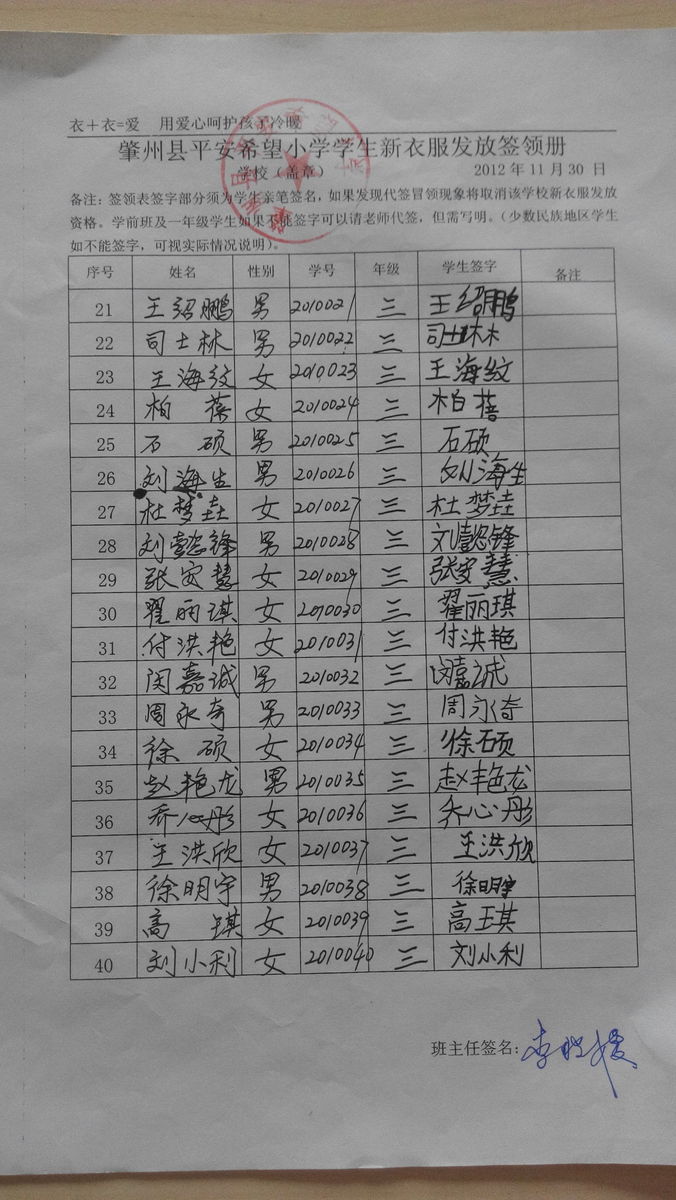 衣＋衣=爱 用爱心呵护孩子冷暖
肇州县平安希望小学学生新衣服发放签领册
学校（盖章） 2012年11月30日
备注：签领表签字部分须为学生亲笔签名，如果发现代签冒领现象将取消该学校新衣服发放
资格。学前班及一年级学生如果不能签字可以请老师代签，但需写明。（少数民族地区学生
如不能签字，可视实际情况说明）。
序号 姓名 性别 学号 年级 学生签字 备注
21 王绍鹏 男 2010021 三 王绍鹏
22 司士林 男 2010022 三 司士林
23 王海纹 女 2010023 三 王海纹
24 柏蓓 女 2010024 三 柏蓓
25 石硕 男 2010025 三 石硕
26 刘海生 男 2010026 三 刘海生
27 杜梦垚 女 2010027 三 杜梦垚
28 刘懿锋 男 2010028 三 刘懿锋
29 张安慧 女 2010029 三 张安慧
30 翟丽琪 女 2010030 三 翟丽琪
31 付洪艳 女 2010031 三 付洪艳
32 闵嘉诚 男 2010032 三 闵嘉诚
33 周永奇 男 2010033 三 周永奇
34 徐硕 女 2010034 三 徐硕
35 赵艳龙 男 2010035 三 赵艳龙
36 乔心彤 女 2010036 三 乔心彤
37 王洪欣 女 2010037 三 王洪欣
38 徐明宇 男 2010038 三 徐明宇
39 高琪 女 2010039 三 高琪
40 刘小利 女 2010040 三 刘小利
班主任签名：